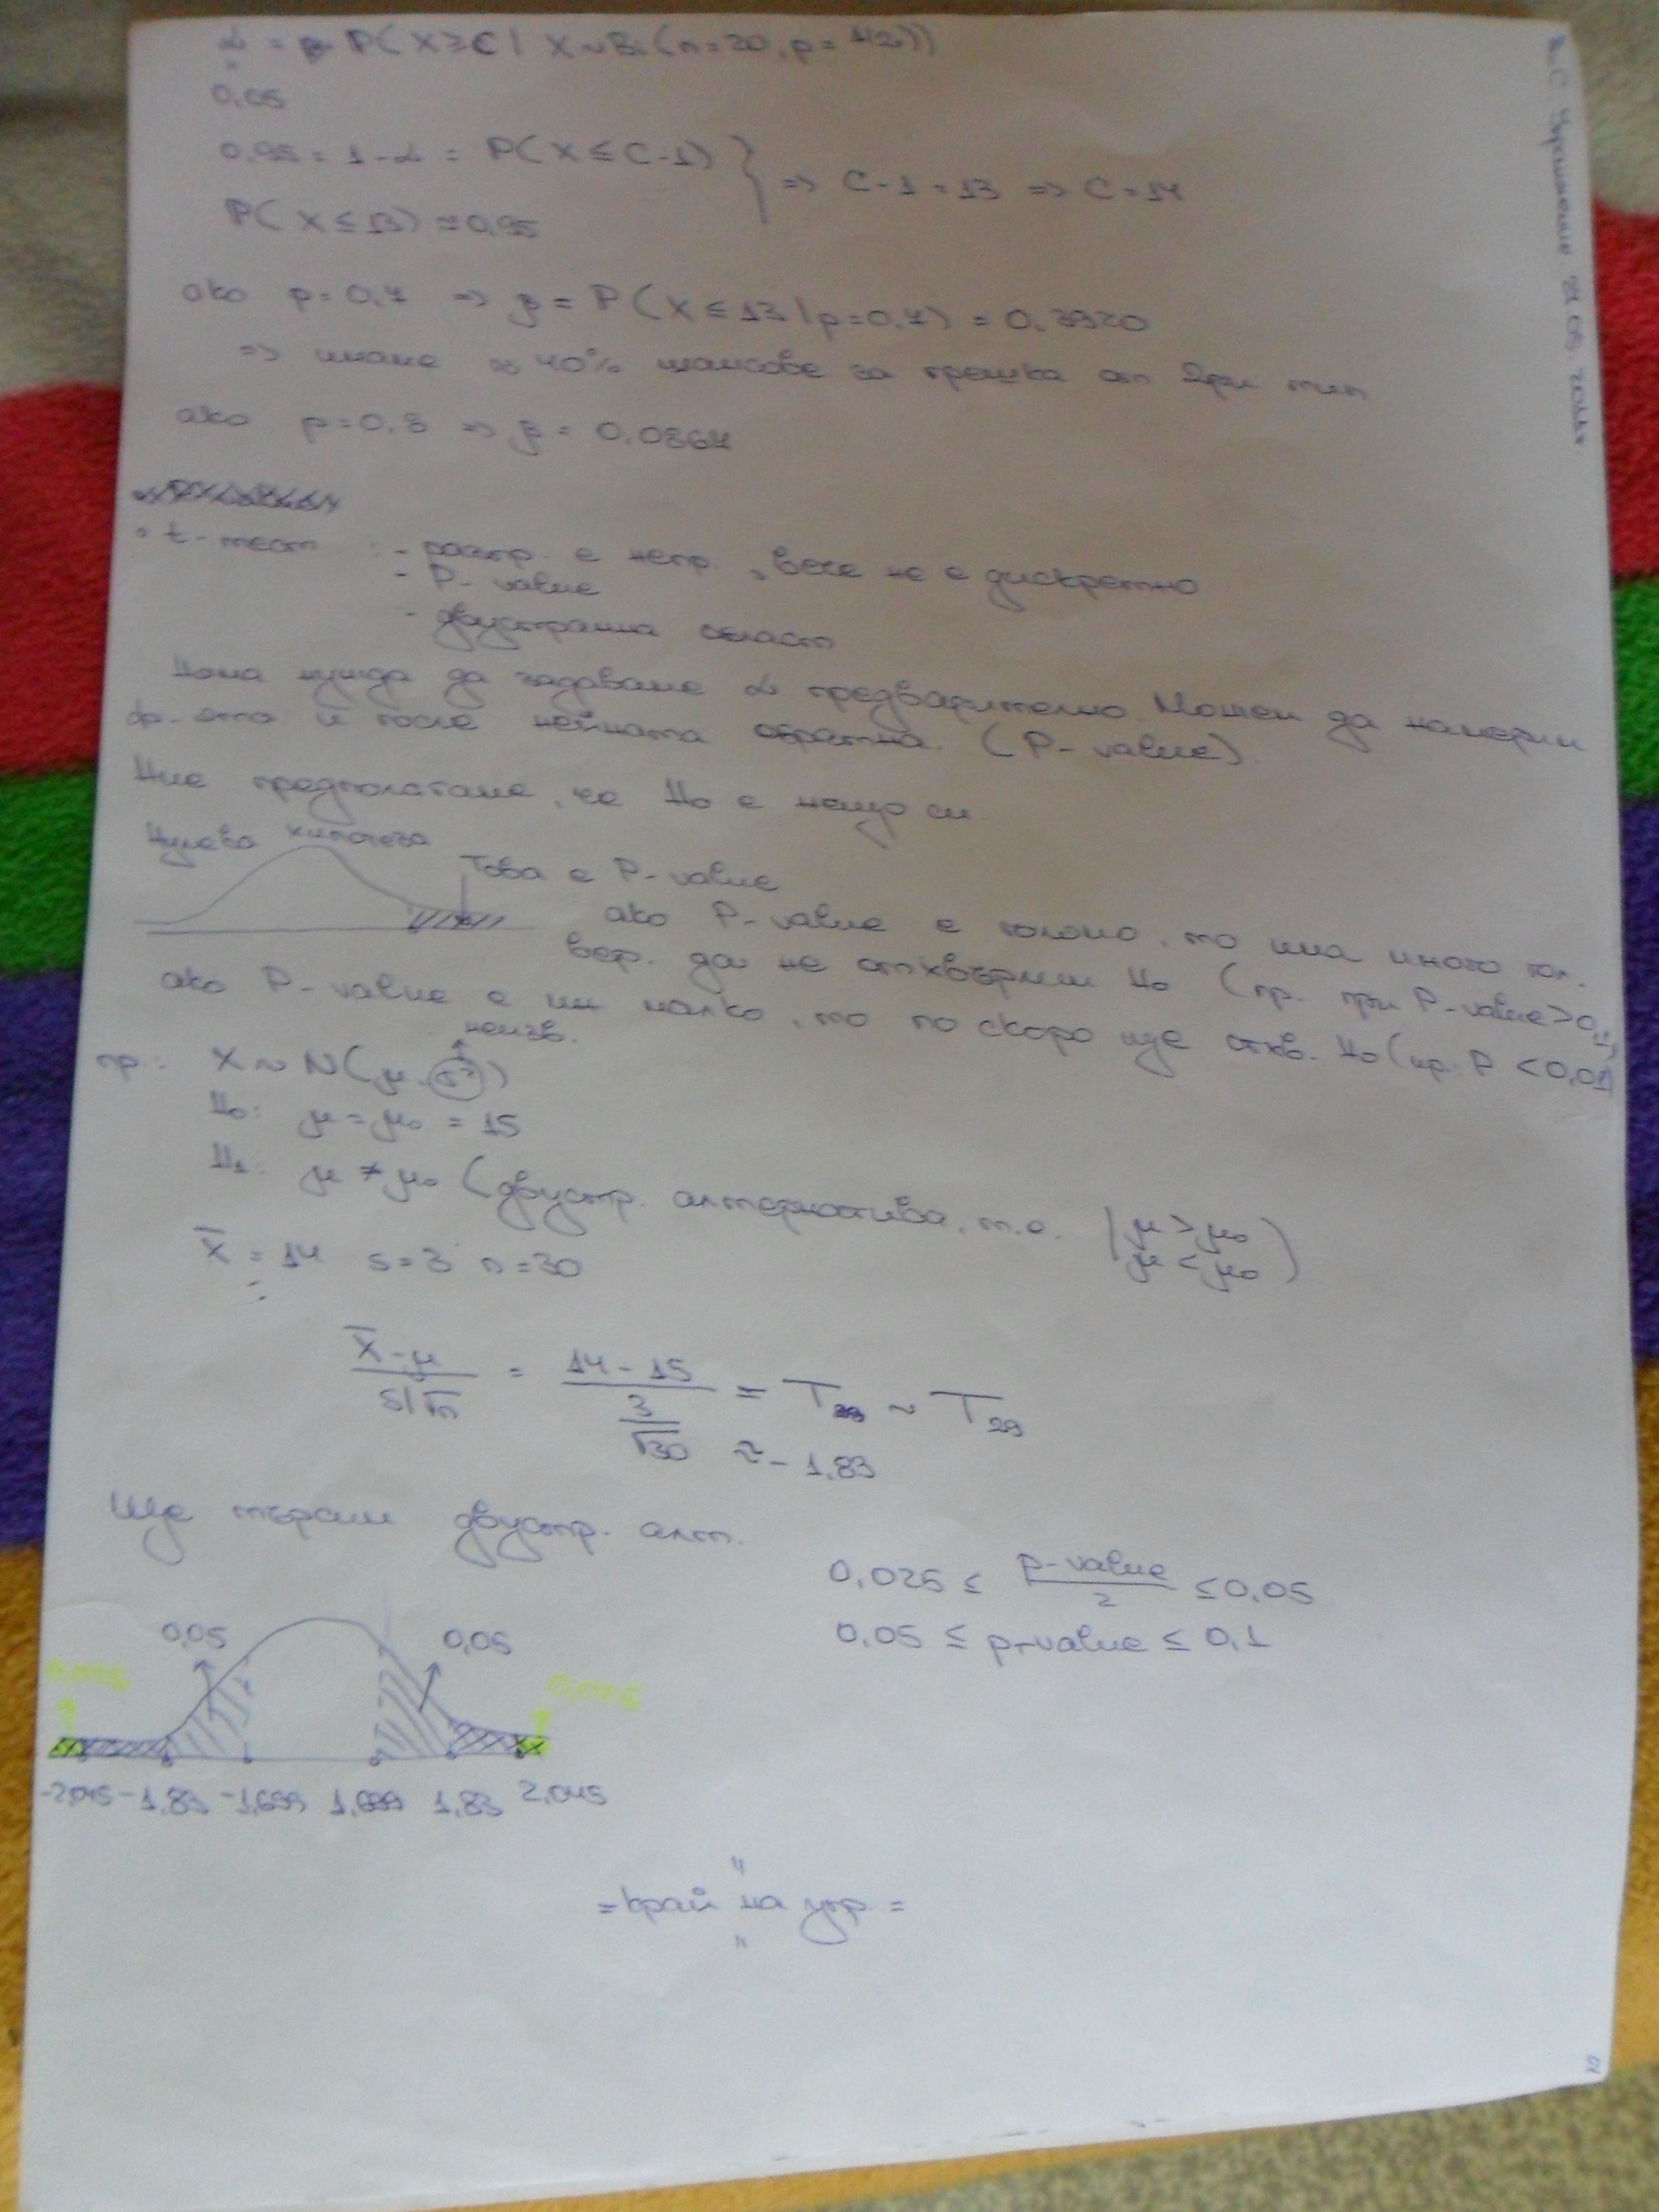 α = P(X ≥ C | X ~ Bi(n=20, p=1/2))
0,05
0,95 = 1-α = P(X ≤ C-1)
P(X ≤ 13) ≈ 0,95
} => C-1 = 13 => C = 14
ако p=0,7 => β = P(X ≤ 13 | p=0,7) = 0,3920
=> имаме ≈ 40% шансове за грешка от 2ри тип
ако p=0,8 => β = 0.0867
• t-тест : - разпр. е непр., вече не е дискретно
- P-value
- двустранна област
Няма нужда да задаваме α предварително. Можем да намерим
ф-ята и после нейната обратна. (P-value)
Ние предполагаме, че H₀ е нещо си.
Нулева хипотеза
Това е P-value
ако P-value е голямо, то има много гол.
вер. да не отхвърлим H₀ (пр. при P-value > 0,1)
ако P-value е мн малко, то по скоро ще отхв. H₀ (пр.: P < 0,01)
неизв.
пр.: X ~ N(μ, σ²)
H₀: μ = μ₀ = 15
H₁: μ ≠ μ₀ (двустр. алтернатива, т.е. | μ > μ₀
μ < μ₀ )
X̄ = 14 s = 3 n = 30
(X̄ - μ)/(s/√n) = (14 - 15)/(3/√30) = T₂₉ ~ T₂₉
≈ -1,83
Ще търсим двустр. алт.
0,025 ≤ p-value/2 ≤ 0,05
0,05 ≤ p-value ≤ 0,1
0,05 0,05
0,025 0,025
-2,045 -1,83 -1,699 1,699 1,83 2,045
= Край на упр. =